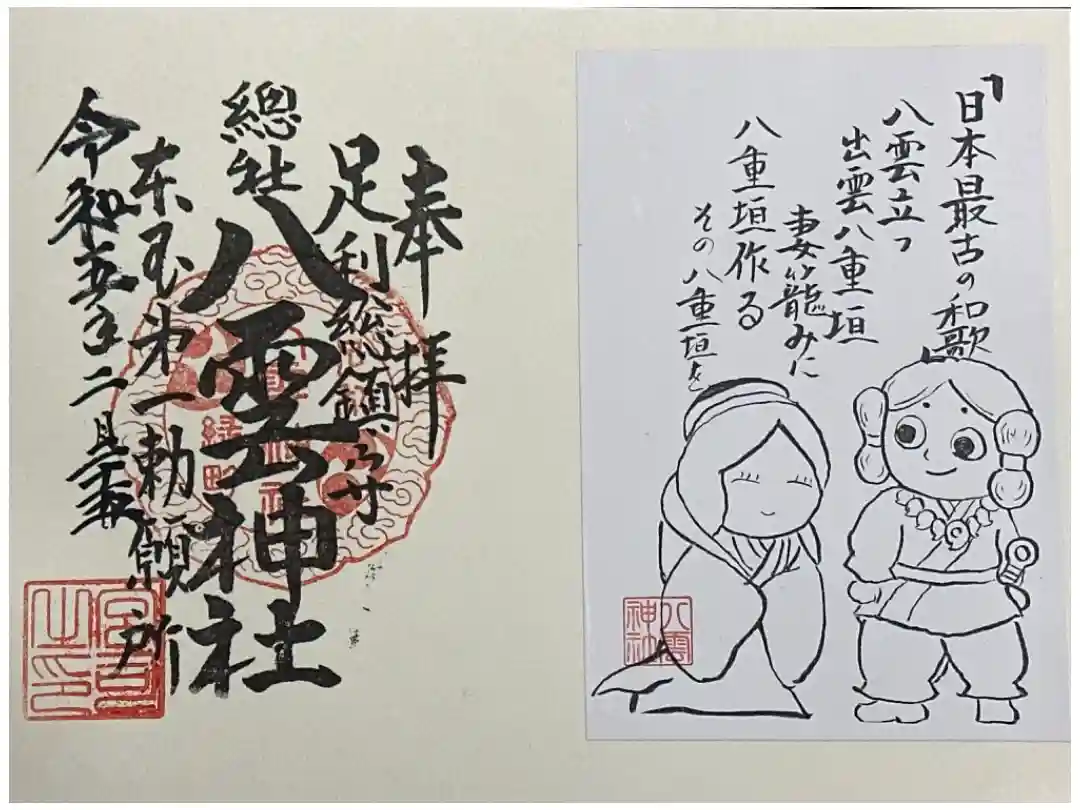 奉拝
足利総鎮守
總社
八雲神社
東国第一勅願所
令和五年二月
宮司之印
「日本最古の和歌」
八雲立つ
出雲八重垣
妻籠みに
八重垣作る
その八重垣を
八雲神社